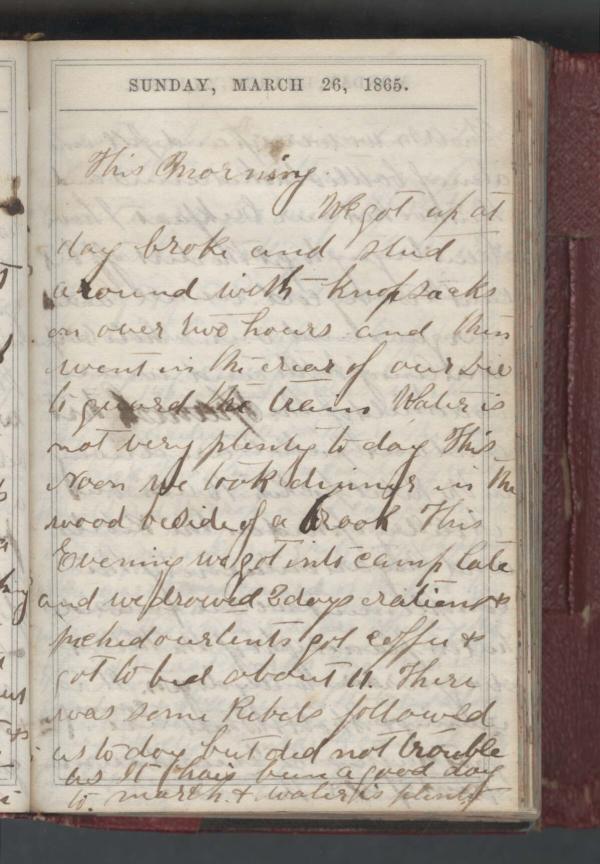 SUNDAY, MARCH 26, 1865.
This Morning
We got up at
day broke and stud
around with knapsacks
on over two hours and then
went in the rear of our Div
to guard the train Water is
not very plenty to day This
Noon we took dinner in the
wood beside of a brook This
Evening we got into camp late
and we drowed 2 days rations &
piched our tents got coffee &
got to bed about 11. There
was some Rebels followed
us to day but did not trouble
us It has been a good day
to march & water is plenty